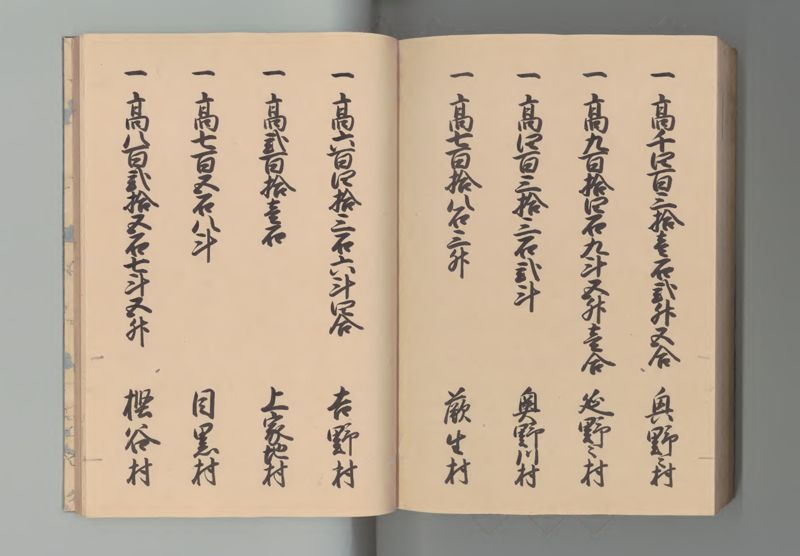 一 高千四百三拾壱石弐升五合 奥野々村
一 高九百拾四石九斗五升壱合 延野々村
一 高四百三拾三石弐斗 奥野川村
一 高七百拾八石三升 蕨生村
一 高六百四拾三石六斗四合 吉野村
一 高弐百拾壱石 上家地村
一 高七百五石八斗 目黒村
一 高八百弐拾五石七斗五升 樫谷村